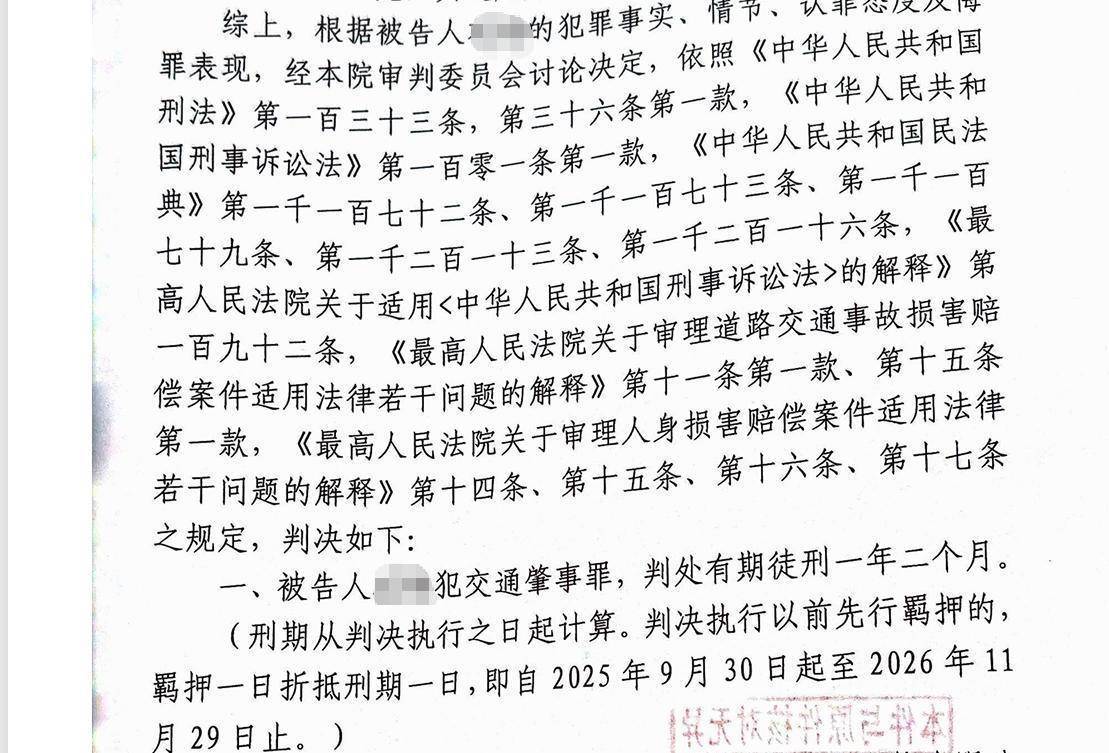 综上，根据被告人的犯罪事实、情节、认罪态度及悔
罪表现，经本院审判委员会讨论决定，依照《中华人民共和国
刑法》第一百三十三条，第三十六条第一款，《中华人民共和
国刑事诉讼法》第一百零一条第一款，《中华人民共和国民法
典》第一千一百七十二条、第一千一百七十三条、第一千一百
七十九条、第一千二百一十三条、第一千二百一十六条，《最
高人民法院关于适用<中华人民共和国刑事诉讼法>的解释》第
一百九十二条，《最高人民法院关于审理道路交通事故损害赔
偿案件适用法律若干问题的解释》第十一条第一款、第十五条
第一款，《最高人民法院关于审理人身损害赔偿案件适用法律
若干问题的解释》第十四条、第十五条、第十六条、第十七条
之规定，判决如下：
一、被告人犯交通肇事罪，判处有期徒刑一年二个月。
（刑期从判决执行之日起计算。判决执行以前先行羁押的，
羁押一日折抵刑期一日，即自2025年9月30日起至2026年11
月29日止。）
本件与原件核对无异